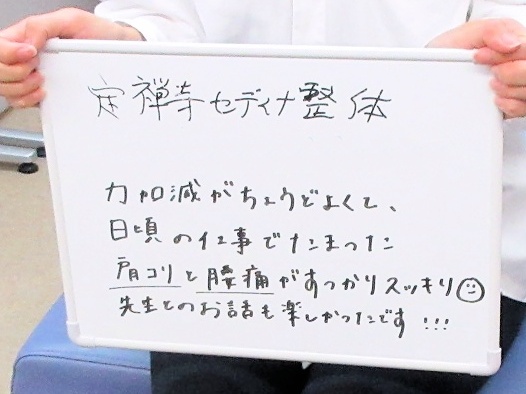 定禅寺セディナ整体
力加減がちょうどよくて、
日頃の仕事でたまった
肩コリと腰痛がすっかりスッキリ☺
先生とのお話も楽しかったです!!!